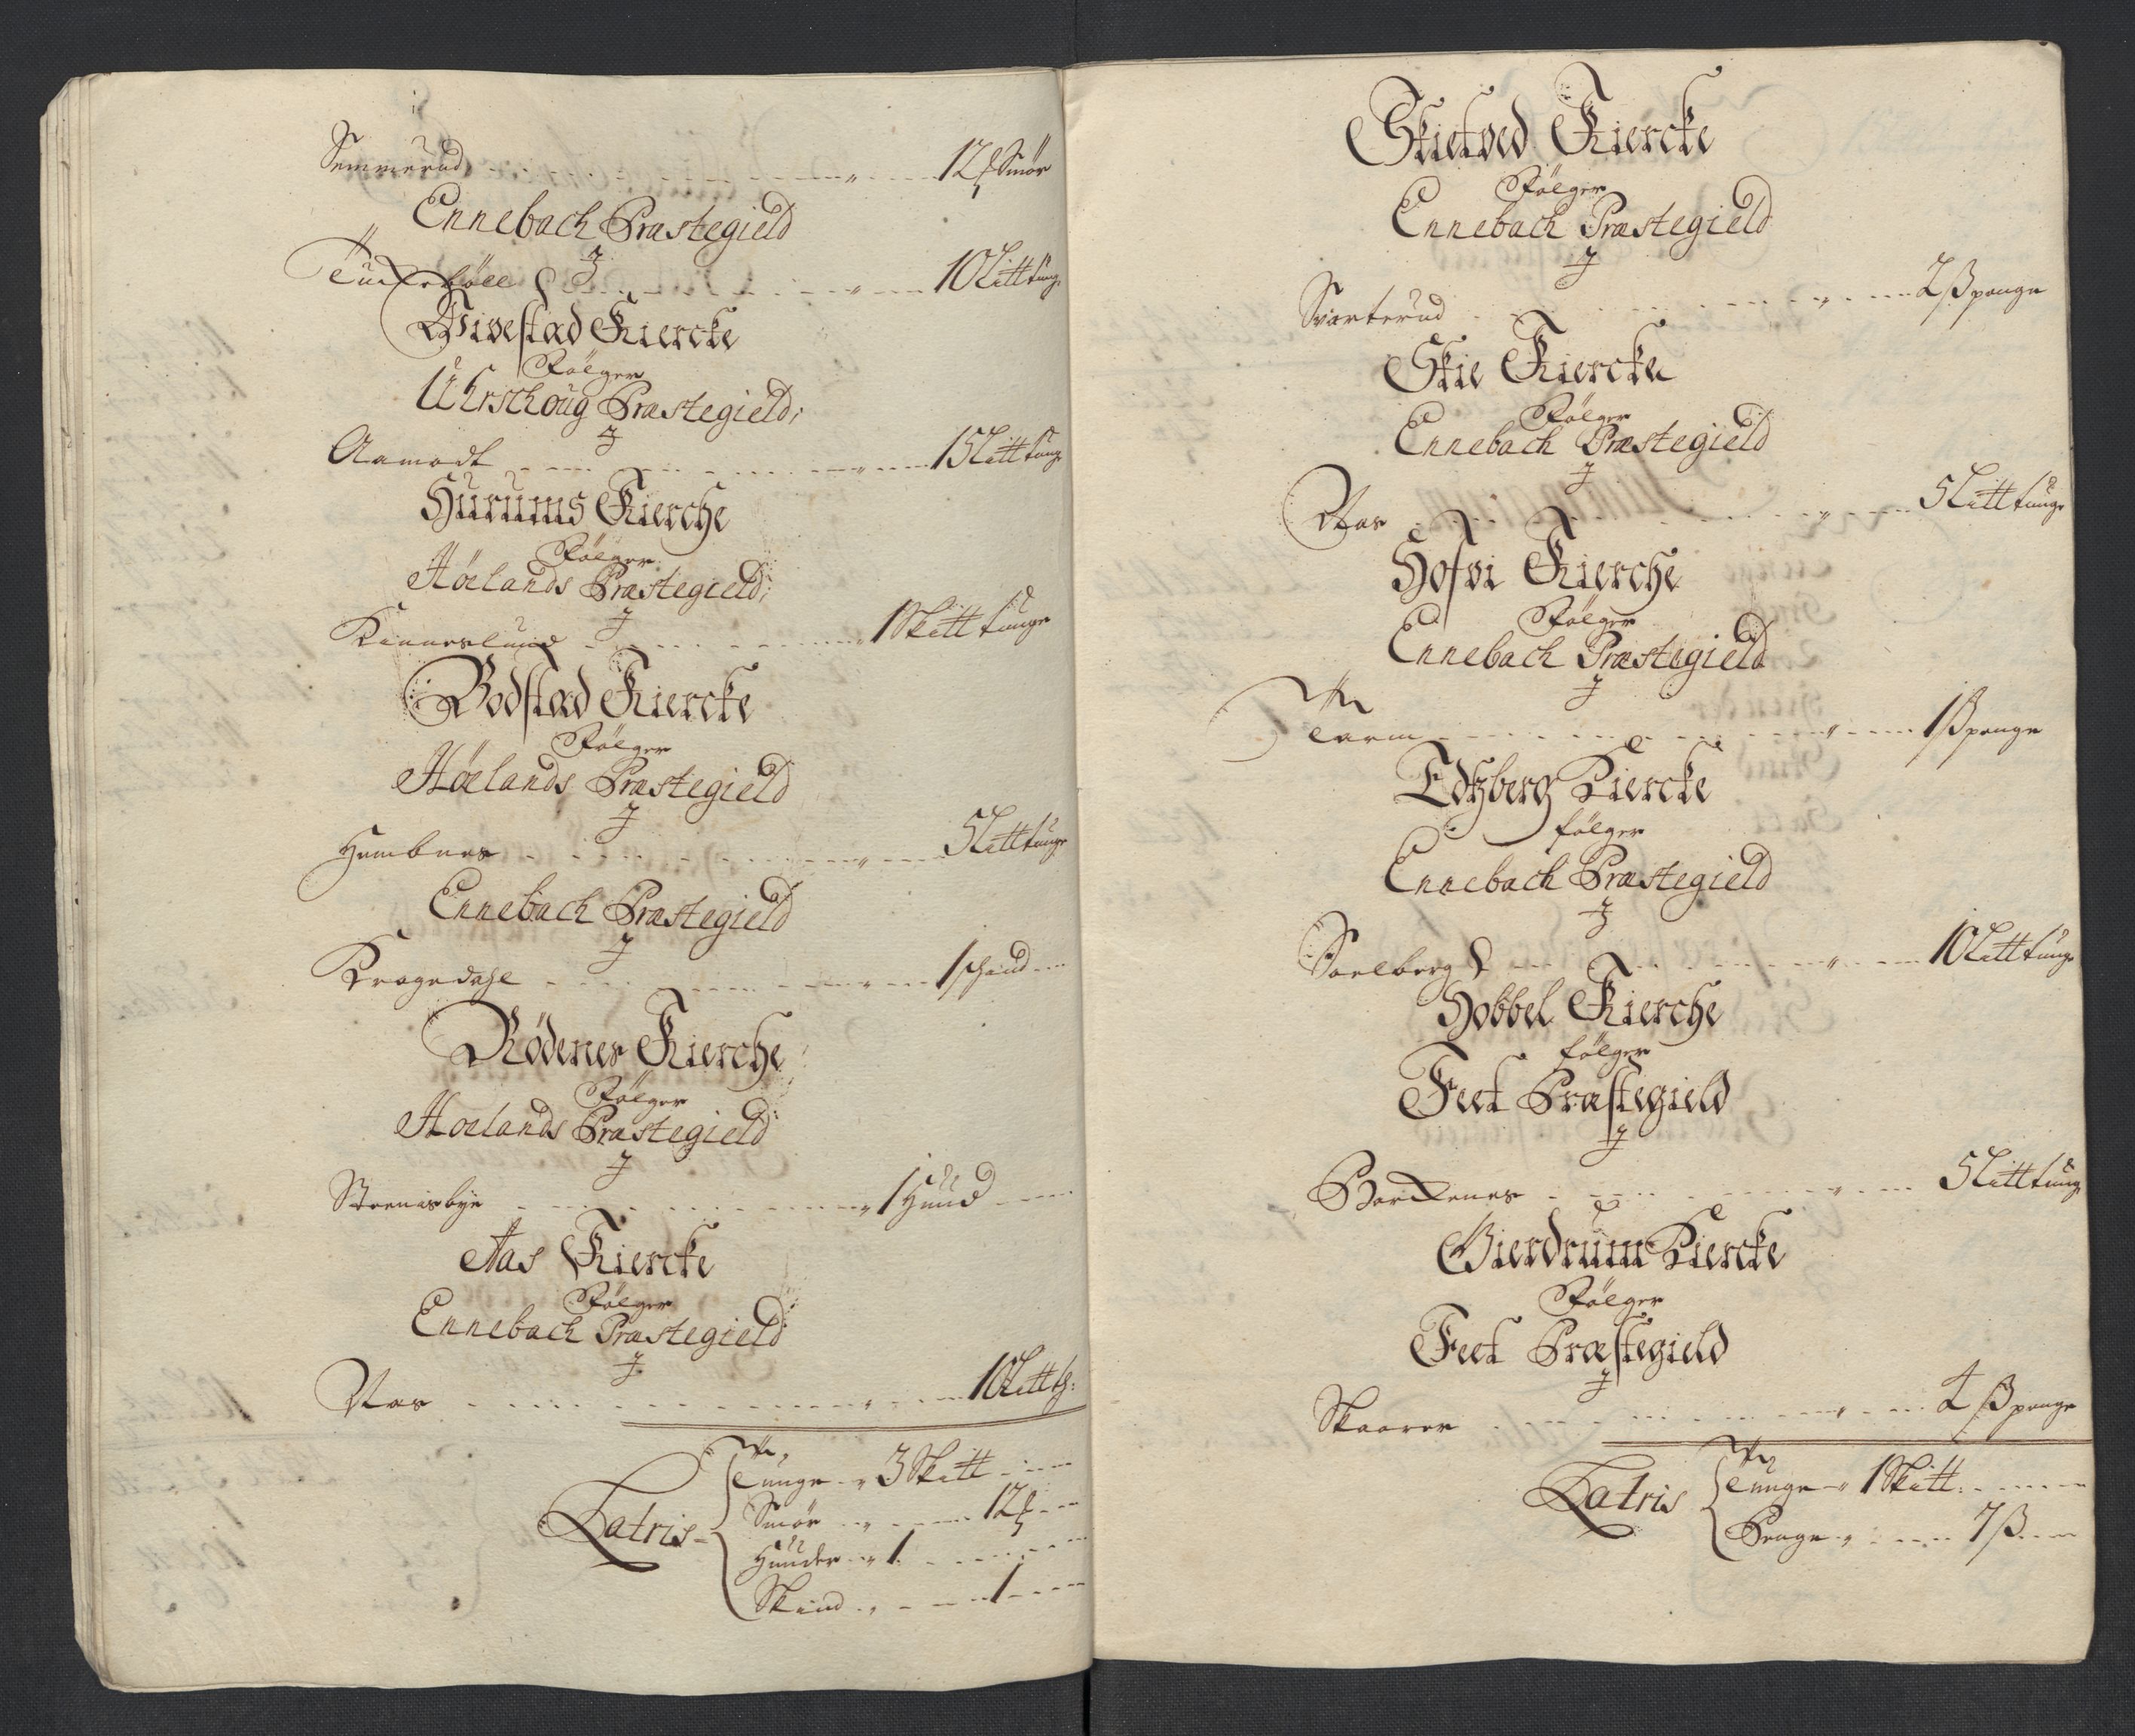 Semmerud 12 ℔ Smör
Ennebach Præstegield
J
Tuchebøll 10 Litt tunge
Wivestad Kiercke
Følger
Uhrschoug Præstegield
J
Aamodt 15 Litt tunge
Hurums Kierche
Følger
Høelands Præstegield
J
Kinneslund 1 Skitt tunge
Bodstad Kiercke
Følger
Høelands Præstegield
J
Hembnes 5 Litt tunge
Ennebach Præstegield
J
Kragedahl 1 schind
Rödenes Kierche
Følger
Hoelands Præstegield
J
Strenisbye 1 Huud
Aas Kiercke
Følger
Ennebach Præstegield
J
Aas 10 Litt t:
Latris
Tunge 3 Skitt
Smör 12 ℔
Huuder 1
Skind 1
Skietved Kiercke
Følger
Ennebach Præstegield
J
Svarterud 2 ß penge
Skie Kiercke
Følger
Ennebach Præstegield
J
Aas 5 Litt tunge
Hofvi Kierche
Følger
Ennebach Præstegield
J
Tarm 1 ß penge
Edtzberg Kiercke
følger
Ennebach Præstegield
J
Soelberg 10 Litt tunge
Hobbel Kierche
følger
Feet Præstegield
J
Borchenes 5 Litt tunge
Gierdrum Kiercke
Følger
Feet Præstegield
J
Skaarer 4 ß penge
Latris
Tunge 1 Skitt:
Penge 7 ß